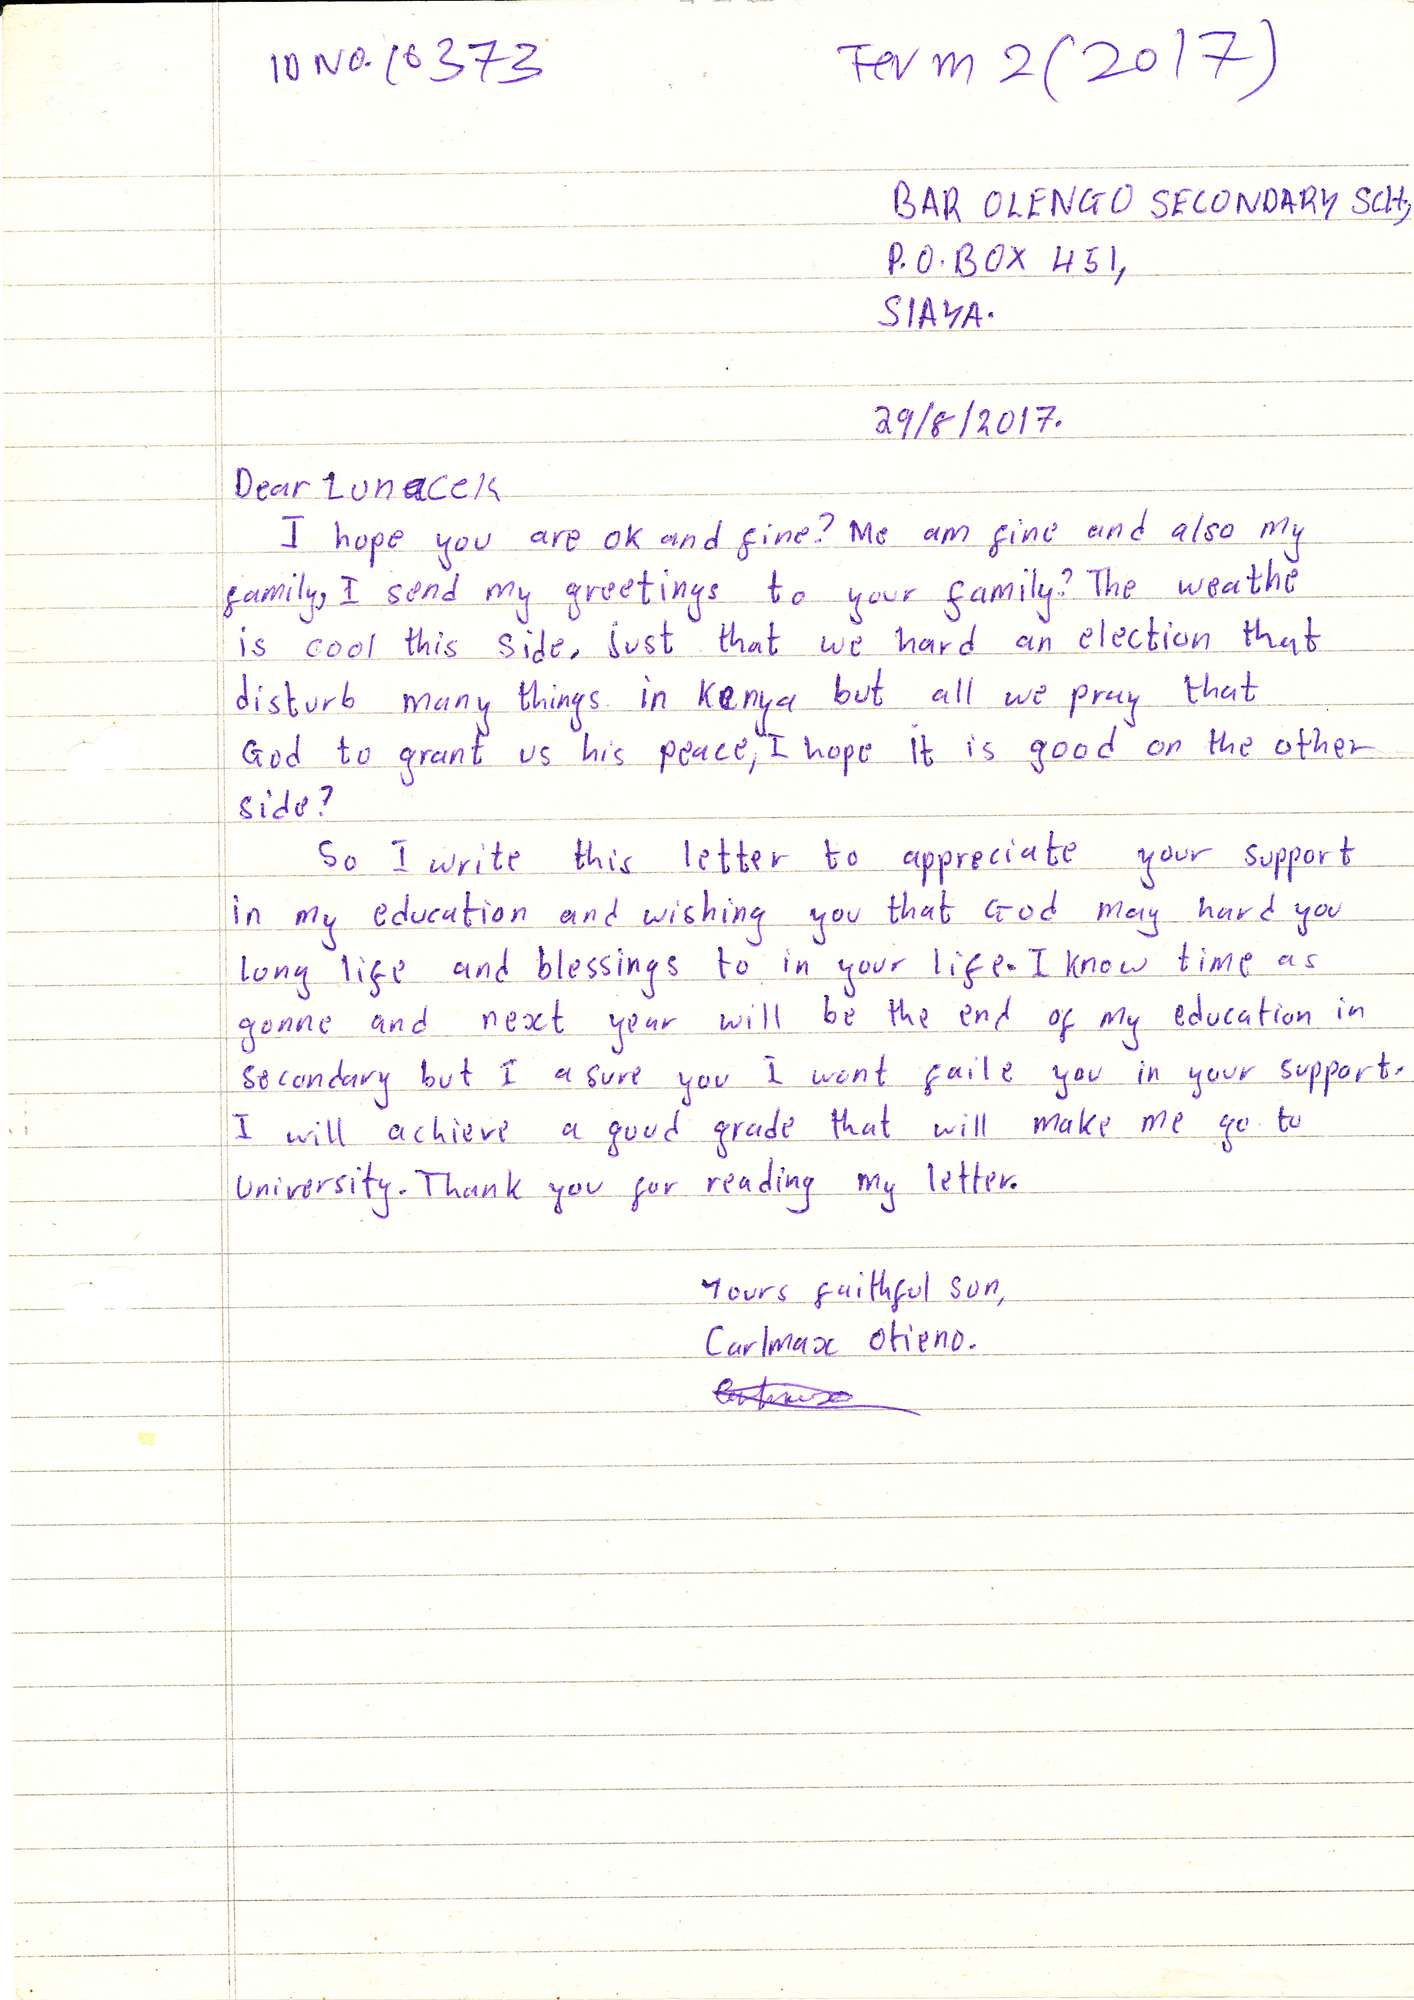 ID NO. 10373 Term 2 (2017)
BAR OLENGO SECONDARY SCH,
P.O. BOX 451,
SIAYA.
29/8/2017.
Dear Lunacek
I hope you are ok and fine? Me am fine and also my
family, I send my greetings to your family? The weathe
is cool this side, just that we hard an election that
disturb many things in Kenya but all we pray that
God to grant us his peace, I hope it is good on the other
side?
So I write this letter to appreciate your support
in my education and wishing you that God may hard you
long life and blessings to in your life. I know time as
gonne and next year will be the end of my education in
secondary but I asure you I wont faile you in your support.
I will achieve a good grade that will make me go to
University. Thank you for reading my letter.
Yours faithful son,
Carlmax Otieno.